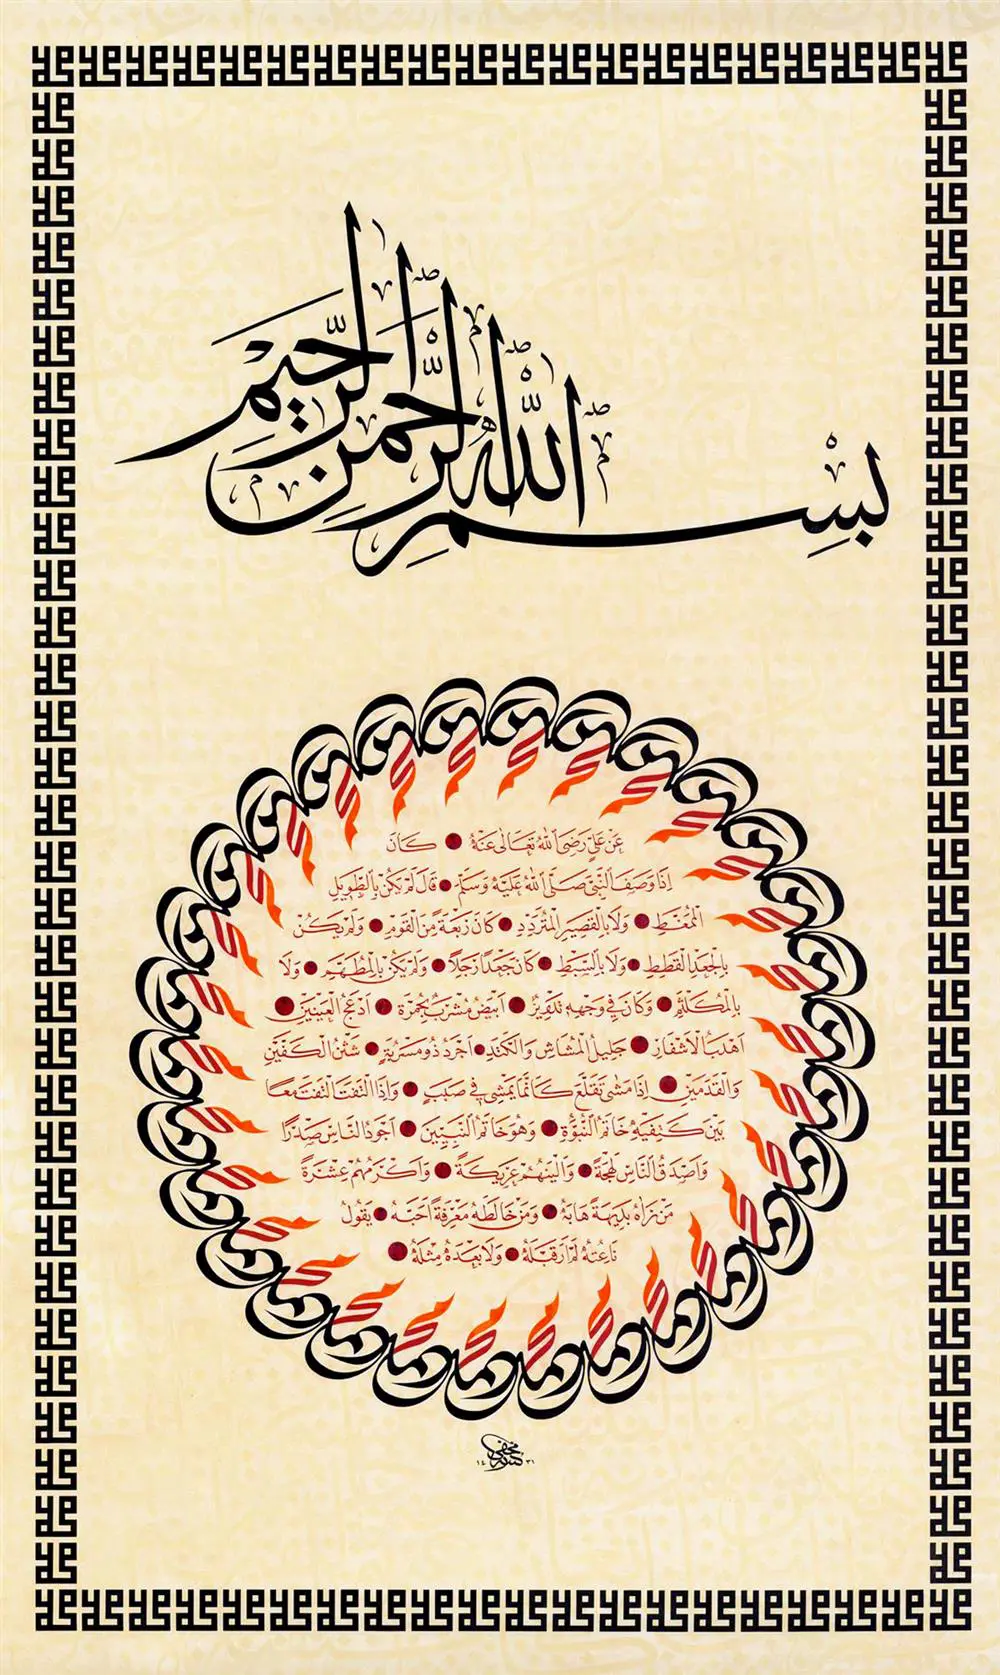 بِسْمِ اللّٰهِ الرَّحْمٰنِ الرَّحِيمِ
عَنْ عَلِيٍّ رَضِيَ اللّٰهُ تَعَالٰى عَنْهُ كَانَ
اِذَا وَصَفَ النَّبِيَّ صَلَّى اللّٰهُ عَلَيْهِ وَسَلَّمَ قَالَ لَمْ يَكُنْ بِالطَّوِيلِ
الْمُمَّغِطِ وَلَا بِالْقَصِيرِ الْمُتَرَدِّدِ كَانَ رَبْعَةً مِنَ الْقَوْمِ وَلَمْ يَكُنْ
بِالْجَعْدِ الْقَطَطِ وَلَا بِالسَّبِطِ كَانَ جَعْدًا رَجِلًا وَلَمْ يَكُنْ بِالْمُطَهَّمِ وَلَا
بِالْمُكَلْثَمِ وَكَانَ فِي وَجْهِهِ تَدْوِيرٌ اَبْيَضُ مُشْرَبٌ بِحُمْرَةٍ اَدْعَجُ الْعَيْنَيْنِ
اَهْدَبُ الْاَشْفَارِ جَلِيلُ الْمُشَاشِ وَالْكَتَدِ اَجْرَدُ ذُو مَسْرُبَةٍ شَثْنُ الْكَفَّيْنِ
وَالْقَدَمَيْنِ اِذَا مَشٰى تَقَلَّعَ كَاَنَّمَا يَمْشِي فِي صَبَبٍ وَاِذَا الْتَفَتَ الْتَفَتَ مَعًا
بَيْنَ كَتِفَيْهِ خَاتَمُ النُّبُوَّةِ وَهُوَ خَاتَمُ النَّبِيِّينَ اَجْوَدُ النَّاسِ صَدْرًا
وَاَصْدَقُ النَّاسِ لَهْجَةً وَاَلْيَنُهُمْ عَرِيكَةً وَاَكْرَمُهُمْ عِشْرَةً
مَنْ رَاٰهُ بَدِيهَةً هَابَهُ وَمَنْ خَالَطَهُ مَعْرِفَةً اَحَبَّهُ يَقُولُ
نَاعِتُهُ لَمْ اَرَ قَبْلَهُ وَلَا بَعْدَهُ مِثْلَهُ
١٤٣١